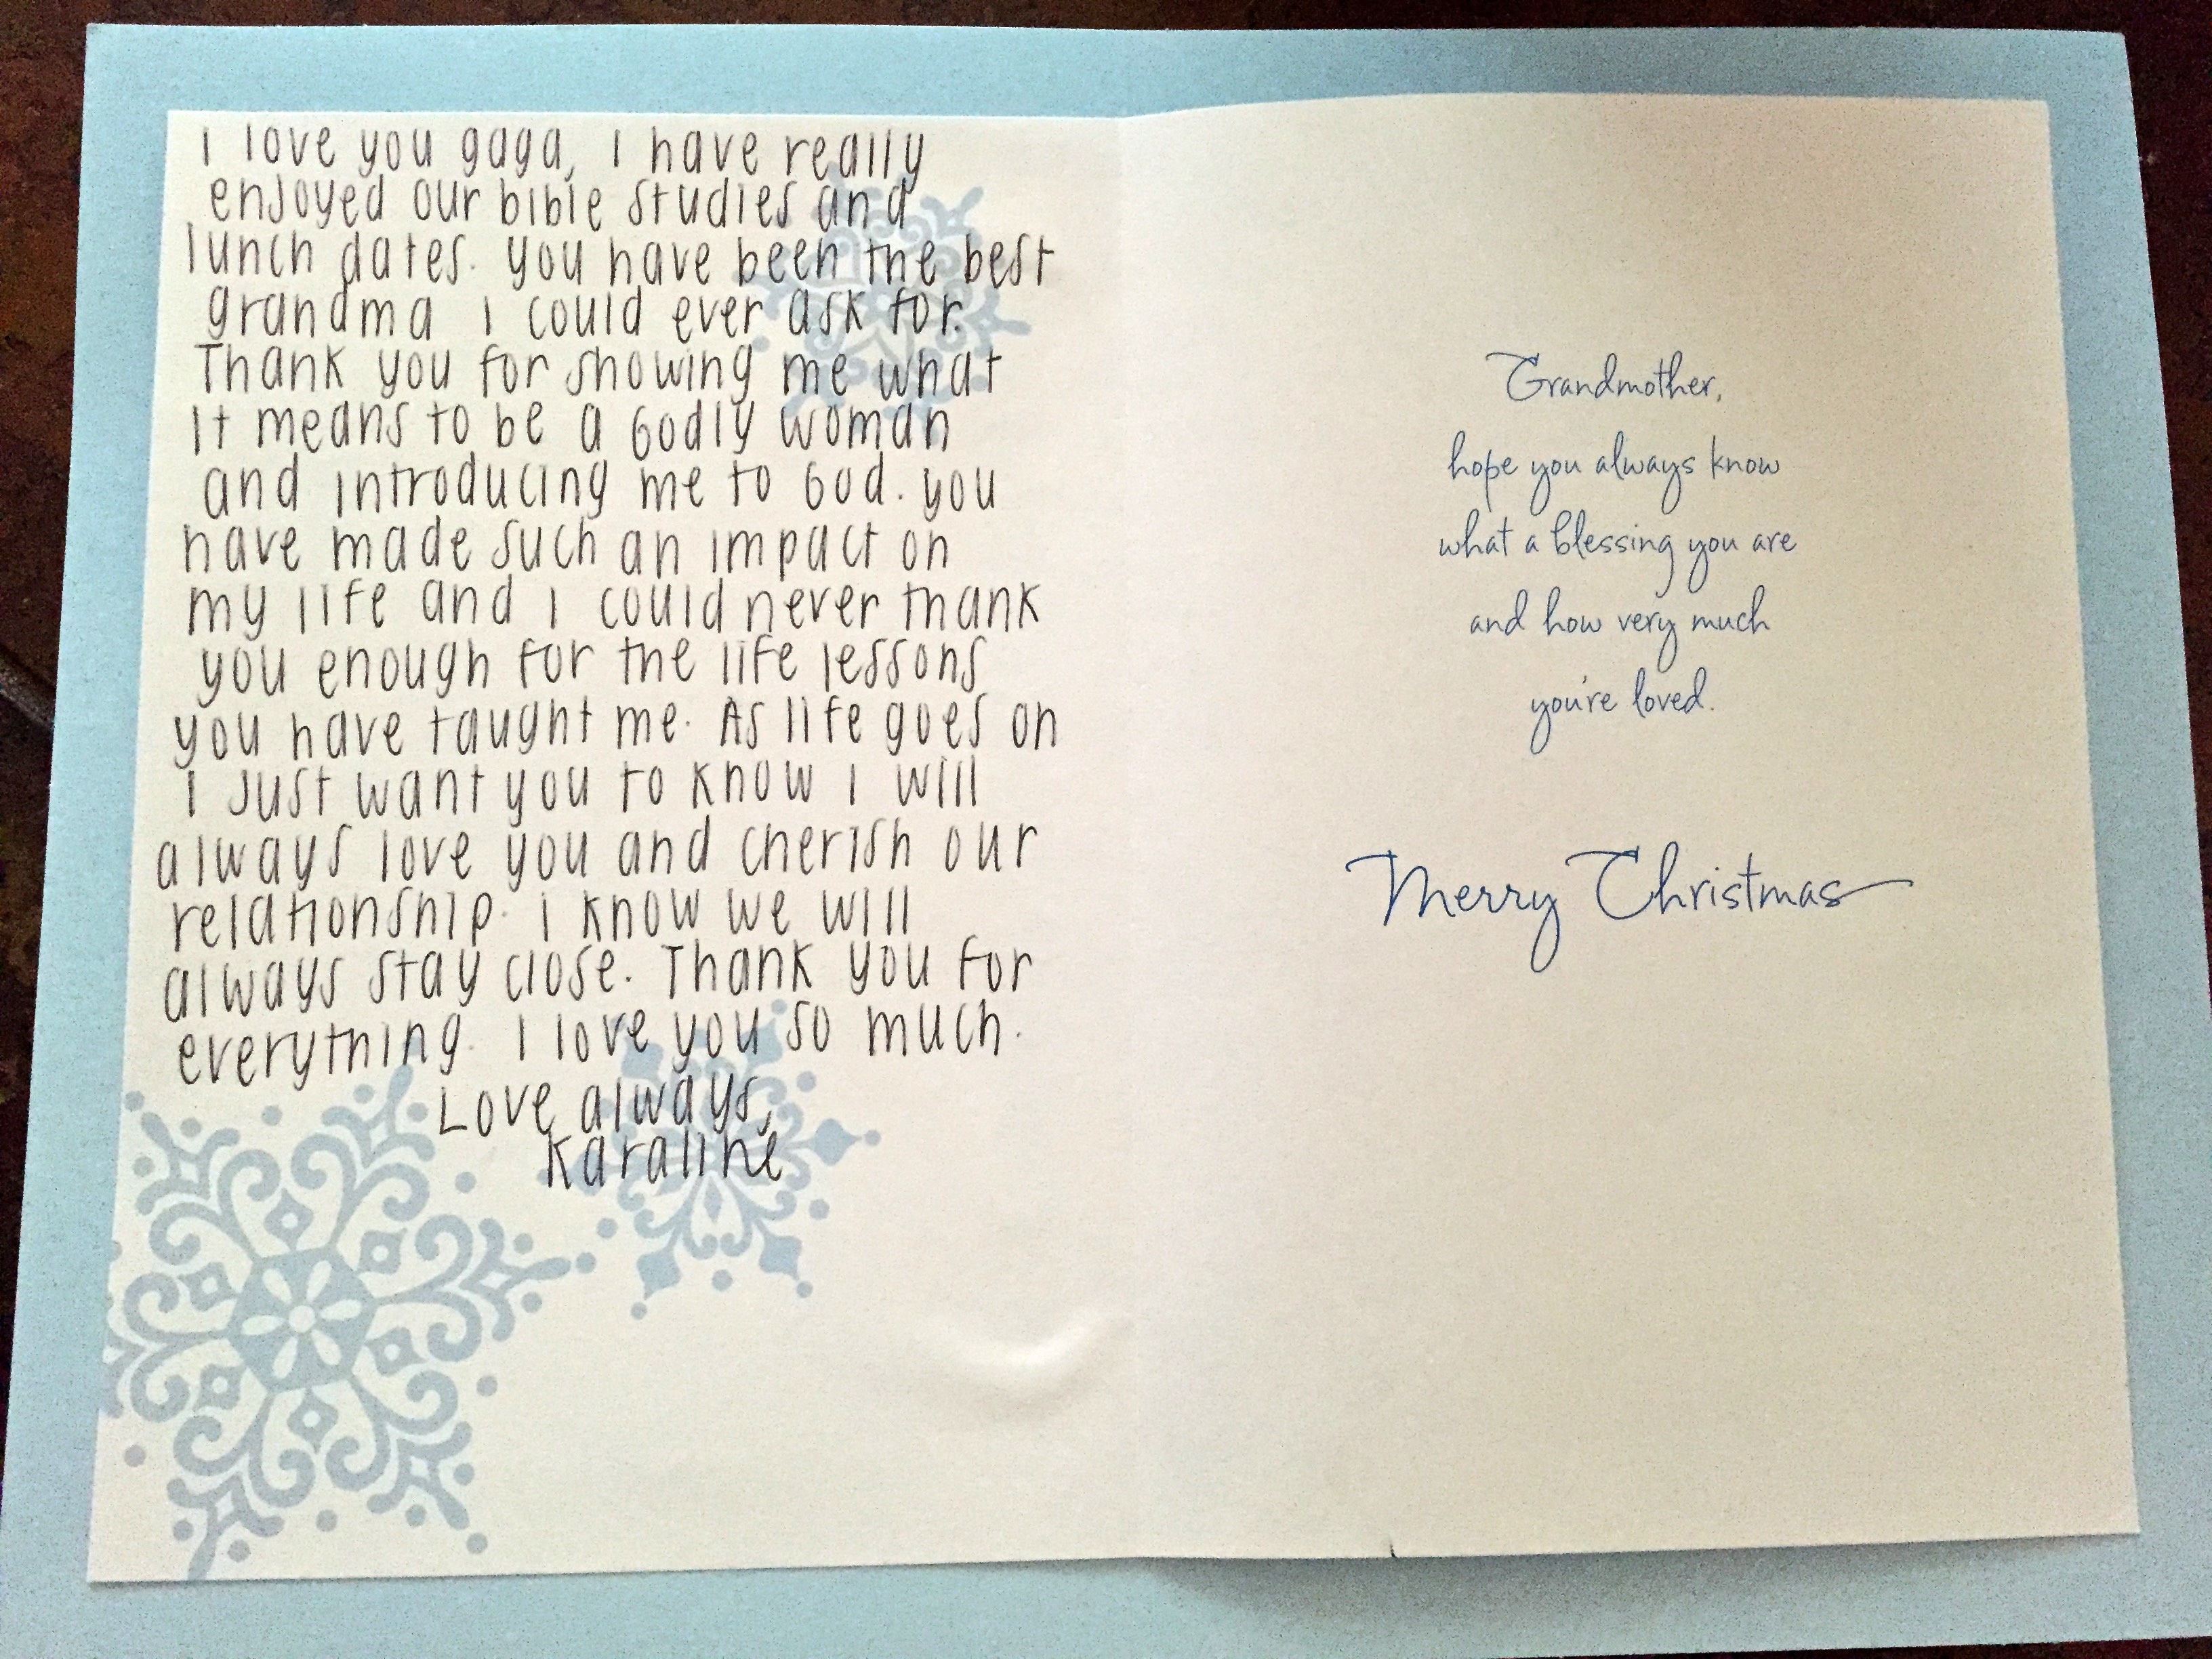 I love you gaga, I have really
enjoyed our bible studies and
lunch dates. you have been the best
grandma I could ever ask for.
Thank you for showing me what
It means to be a Godly woman
and introducing me to God. you
have made such an impact on
my life and I could never thank
you enough for the life lessons
you have taught me. As life goes on
I just want you to know I will
always love you and cherish our
relationship. i know we will
always stay close. Thank you for
everything. I love you so much.
Love always,
Karaline
Grandmother,
hope you always know
what a blessing you are
and how very much
you're loved.
Merry Christmas